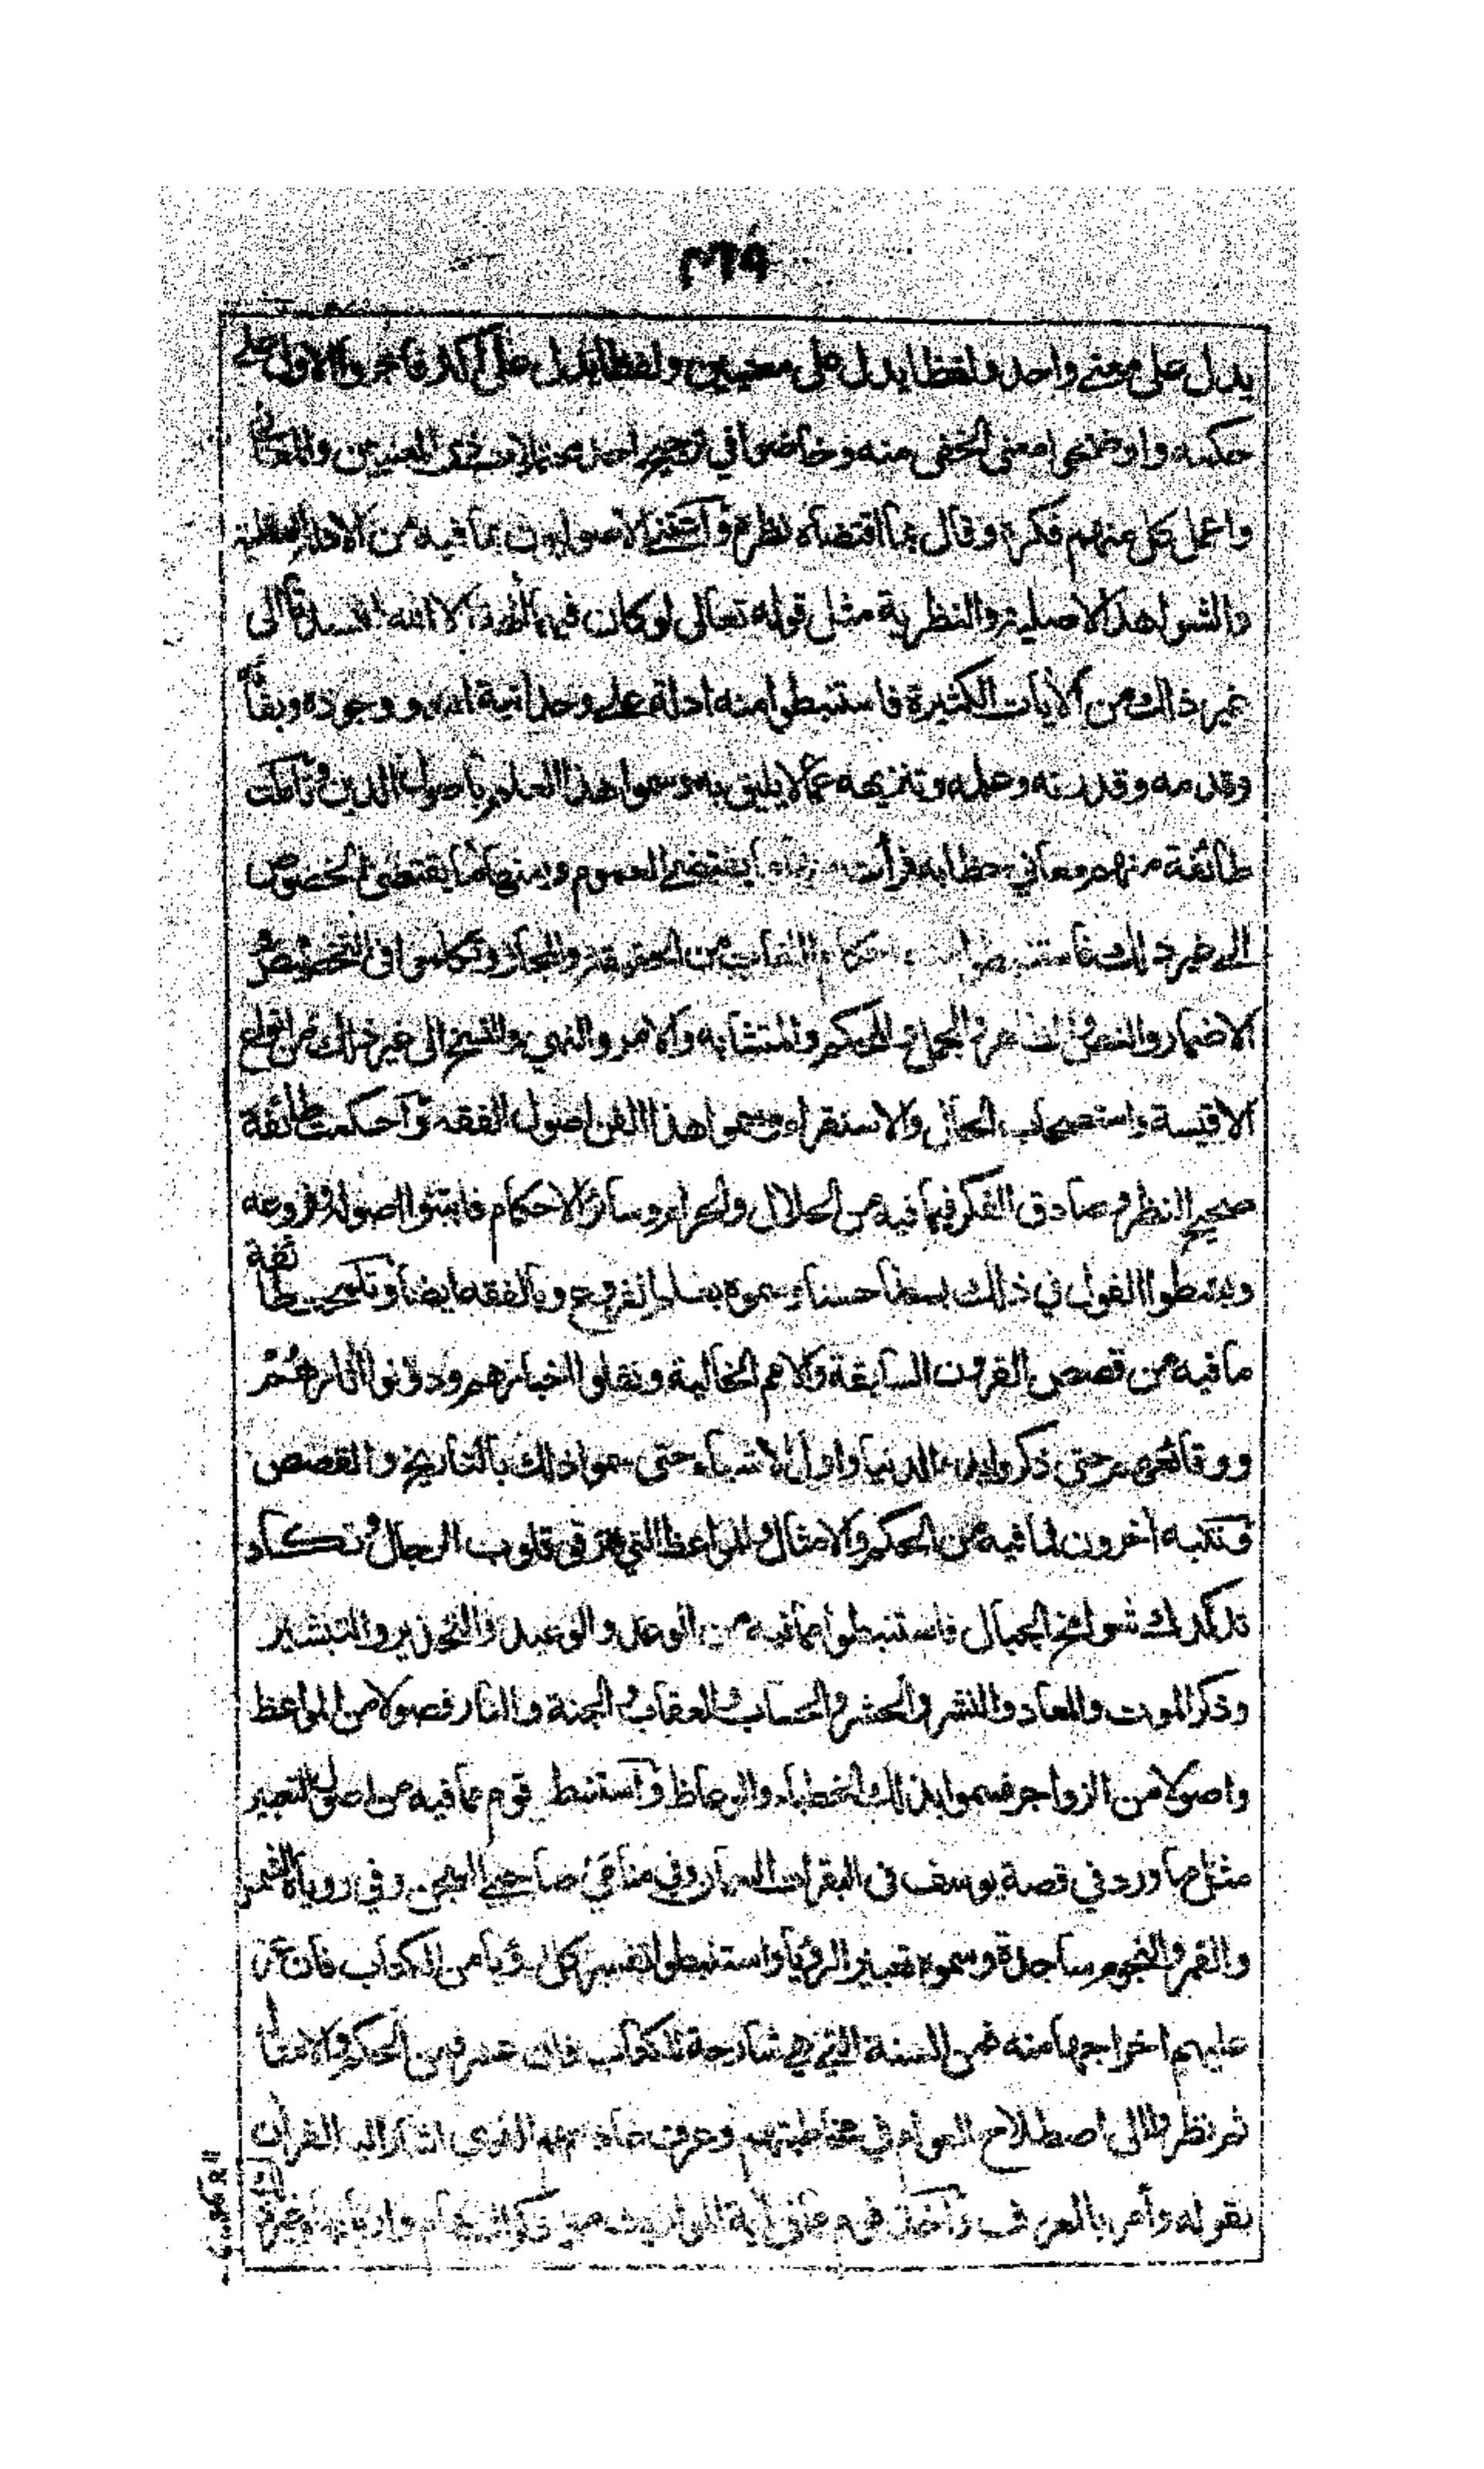 ٣٦٩
يدل على معنى واحد ولفظا يدل على معنيين ولفظا يدل على اكثر فاجروا الاول على
حكمه واوضحوا معنى الخفي منه وخاضوا في ترجيح احد محتملات ذي المعنيين والمعاني
واعمل كل منهم فكره وقال بما اقتضاه نظره واعتنى الاصوليون بما فيه من الادلة العقلية
والشواهد الاصلية والنظرية مثل قوله تعالى لو كان فيهما آلهة الا الله لفسدتا الى
غير ذلك من الآيات الكثيرة فاستنبطوا منه ادلة على وحدانية الله ووجوده وبقائه
وقدمه وقدرته وعلمه وتنزيهه عما لا يليق به وسموا هذا العلم باصول الدين وتاملت
طائفة منهم معاني خطابه فرأت منها ما يقتضي العموم ومنها ما يقتضي الخصوص
الى غير ذلك فاستنبطوا منه احكام اللغات من الحقيقة والمجاز وتكلموا في التخصيص و
الاضمار والنص والظاهر والمجمل والمحكم والمتشابه والامر والنهي والنسخ الى غير ذلك من انواع
الاقيسة واستصحاب الحال والاستقراء وسموا هذا الفن اصول الفقه واحكمت طائفة
صحيح النظر وصادق الفكر فيما فيه من الحلال والحرام وسائر الاحكام فابتنوا اصوله وفروعه
وبسطوا القول في ذلك بسطا حسنا وسموه بعلم الفروع وبالفقه ايضا وتلمحت طائفة
ما فيه من قصص القرون السابقة والامم الخالية ونقلوا اخبارهم ودونوا آثارهم
ووقائعهم حتى ذكروا بدء الدنيا واول الاشياء حتى سموا ذلك بالتاريخ والقصص
وتنبه آخرون لما فيه من الحكم والامثال والمواعظ التي ترقق قلوب الرجال وتكاد
تدكدك شوامخ الجبال فاستنبطوا مما فيه من الوعد والوعيد والتحذير والتبشير
وذكر الموت والمعاد والنشر والحشر والحساب والعقاب والجنة والنار فصولا من المواعظ
واصولا من الزواجر فسموا بذلك الخطباء والوعاظ واستنبط قوم مما فيه من اصول التعبير
مثل ما ورد في قصة يوسف في البقرات السمان وفي منامي صاحبي السجن وفي روياه الشمس
والقمر والنجوم ساجدة وسموه تعبير الرؤيا واستنبطوا تفسير كل رؤيا من الكتاب فان عز
عليهم اخراجها منه فمن السنة التي هي شارحة للكتاب فان عسر فمن الحكم والامثال
ثم نظروا الى اصطلاح العوام في مخاطبتهم وعرف عادتهم الذي اشار اليه القرآن
بقوله وأمر بالعرف واخذ قوم مما في آية المواريث من ذكر السهام واربابها وغير ذلك